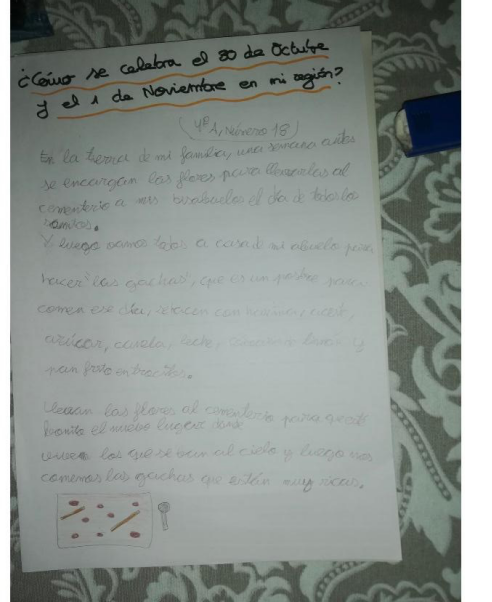 ¿Cómo se celebra el 30 de Octubre
y el 1 de Noviembre en mi región?
(4º A, Número 18)
En la tierra de mi familia, una semana antes
se encargan las flores para llevarlas al
cementerio a mis bisabuelos el día de todos los
santos.
Y luego vamos todos a casa de mi abuela para
hacer "las gachas", que es un postre para
comer ese día, se hacen con harina, aceite,
azúcar, canela, leche, y
pan frito en trocitos.
Llevan las flores al cementerio para que esté
bonito el nuevo lugar donde
viven los que se van al cielo y luego nos
comemos las gachas que están muy ricas.